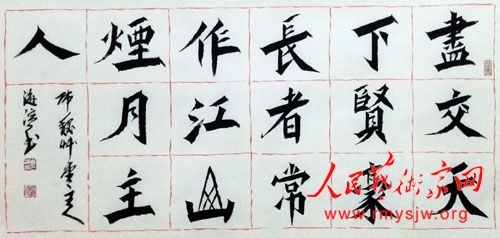 盡交天
下賢豪
長者常
作江山
煙月主
人
人民藝術家网
www.rmysjw.org